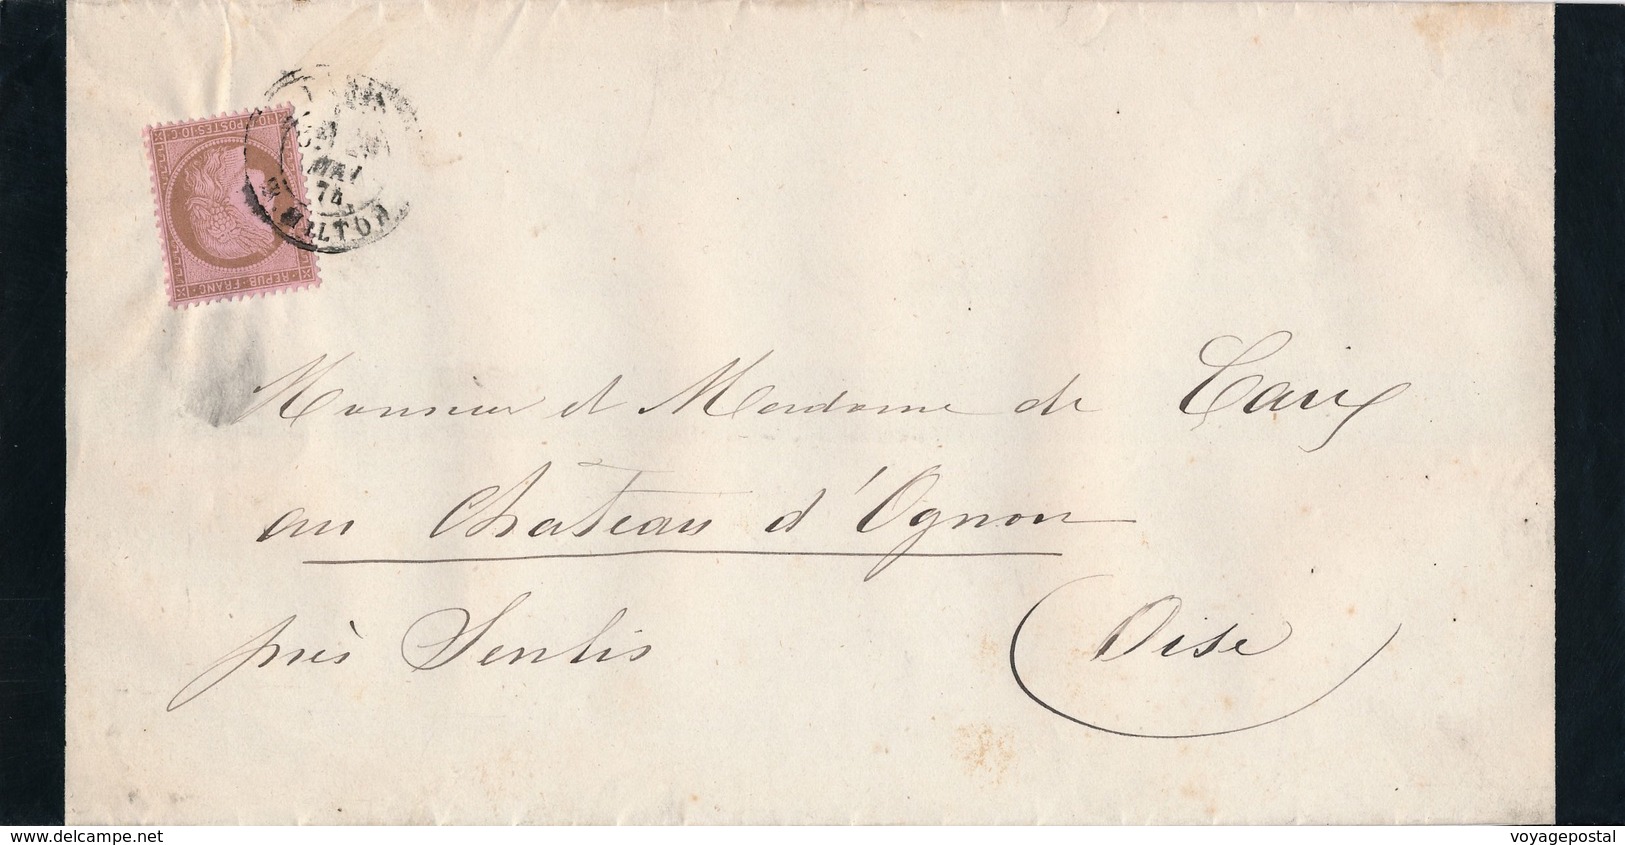 10.C. POSTES 10.C.
REPUB. FRANC.
MAI
74
R. MILTON
Monsieur et Madame de Caix
au Chateau d'Ognon
près Senlis
Oise
www.delcampe.net
voyagepostal